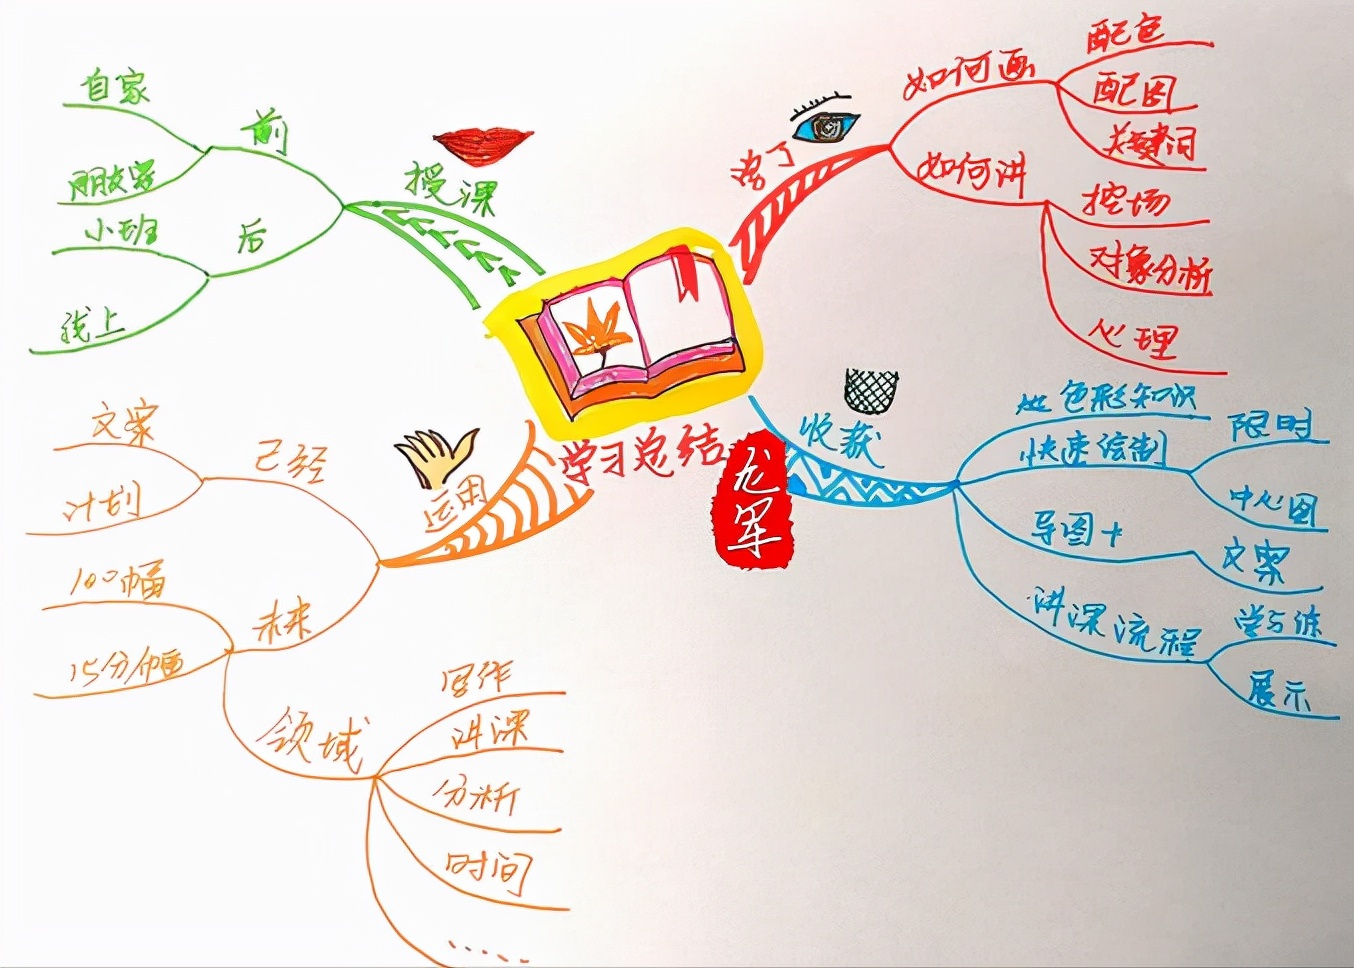 学习总结
龙军
学了
如何画
配色
配图
关键词
如何讲
控场
对象分析
心理
收获
色彩知识
快速绘制
限时
中心图
导图+
文案
讲课流程
学与练
展示
运用
已经
文案
计划
未来
100幅
15分/幅
领域
写作
讲课
分析
时间
......
授课
前
自家
朋友家
后
小班
线上